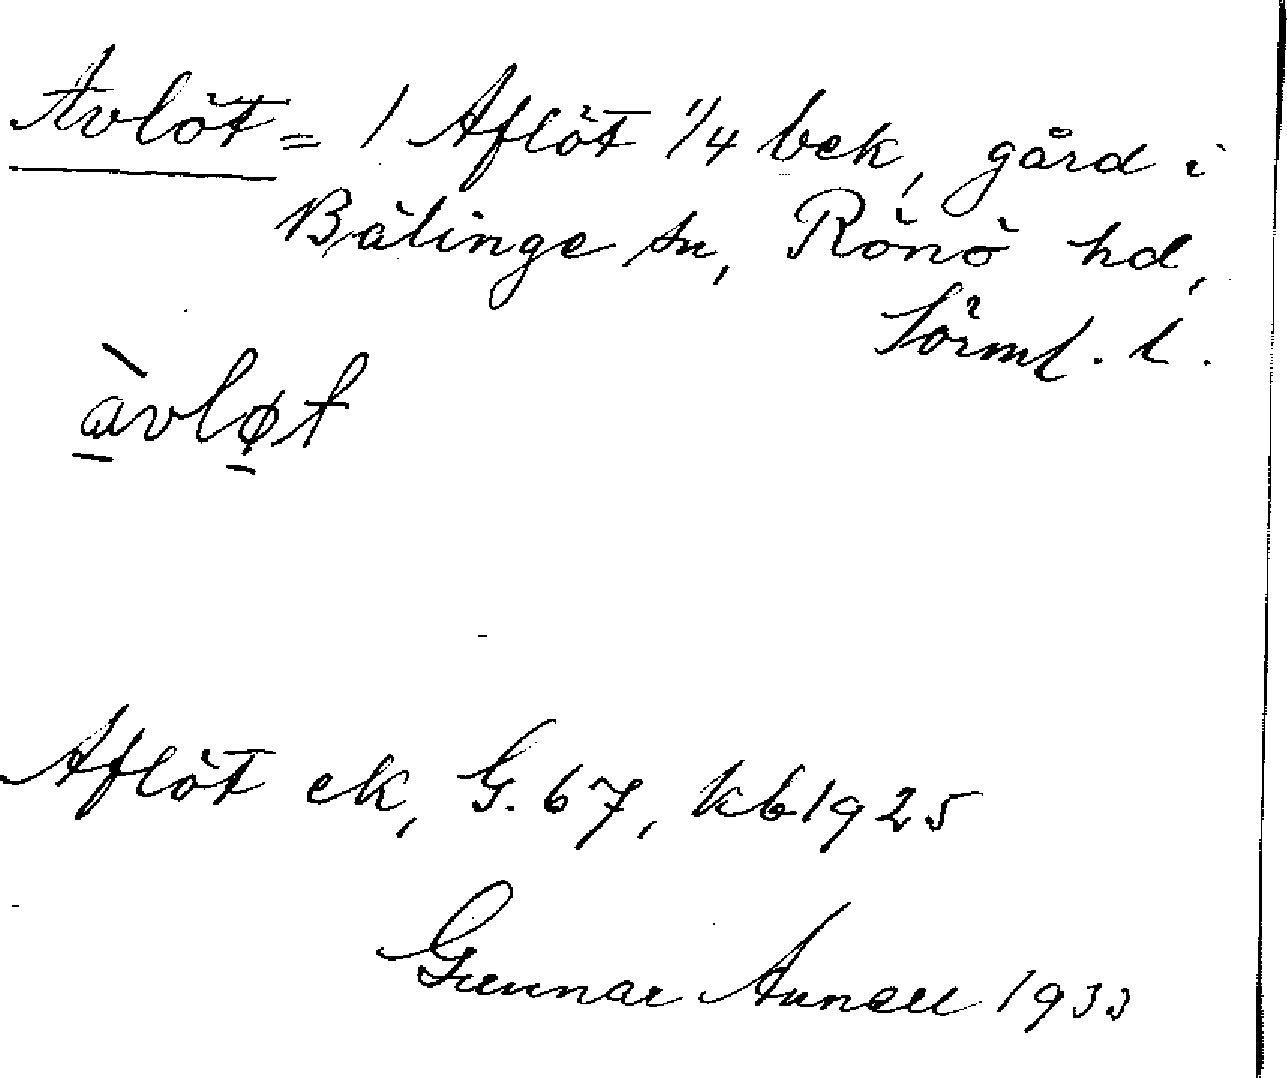 Avlöt = 1 Aflöt 1/4 bek, gård i
Bälinge sn, Rönö hd,
Sörml. l.
àvløt
Aflöt ek, G. 67, kb 1925
Gunnar 1933